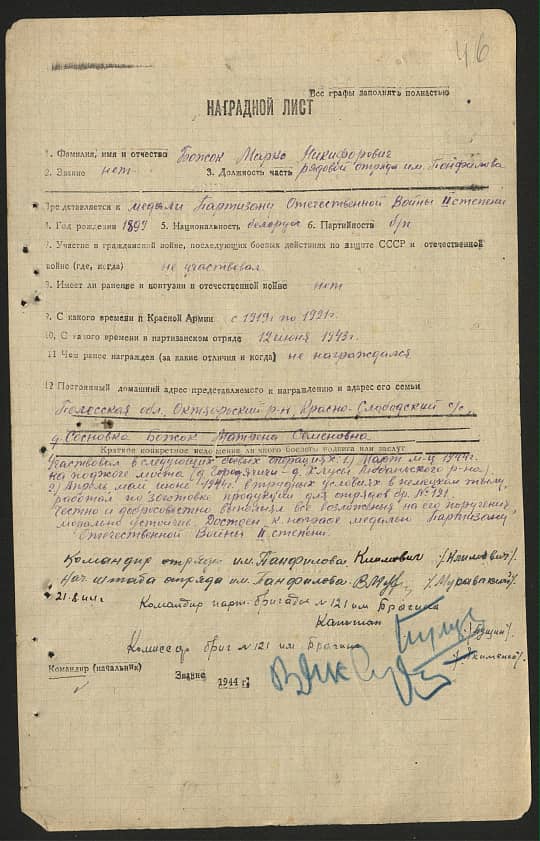 46
Все графы заполнять полностью
НАГРАДНОЙ ЛИСТ
1. Фамилия, имя и отчество Божок Марко Никифорович
2. Звание нет 3. Должность часть рядовой отряда им. Панфилова
Представляется к медали Партизану Отечественной Войны II степени
4. Год рождения 1897 5. Национальность белорус 6. Партийность б/п
7. Участие в гражданской войне, последующих боевых действиях по защите СССР и отечественной
войне (где, когда) не участвовал
8. Имеет ли ранение и контузии в отечественной войне нет
9. С какого времени в Красной Армии с 1919г по 1921г.
10. С какого времени в партизанском отряде 12 июня 1943г.
11 Чем ранее награжден (за какие отличия и когда) не награждался
12 Постоянный домашний адрес представляемого к награждению и адрес его семьи
Полесская обл. Октябрьский р-н, Красно-Слободский с/с,
д. Сосновка Божок Матрена Семеновна
Краткое конкретное изложение личного боевого подвига или заслуг
Участвовал в следующих боевых операциях: 1) Март м-ц 1944г.
на поджоге моста (д. – д. Хлусы Любаньского р-на).
2) Апрель май июнь 1944г. в трудных условиях в немецком тылу,
работал по заготовке продукции для отрядов бр. № 121.
Честно и добросовестно выполнял все возложения на его поручения,
морально устойчив. Достоен к награде медалью Партизану
Отечественной Войны II степени.
Командир отряда им. Панфилова /Климович/
Нач штаба отряда им. Панфилова /Муравский/
21.8.44г Командир парт. бригады № 121 им Брагина
Капитан
Комиссар бриг № 121 им Брагина
/Якименко/.
Командир (начальник) Звание 1944 г.